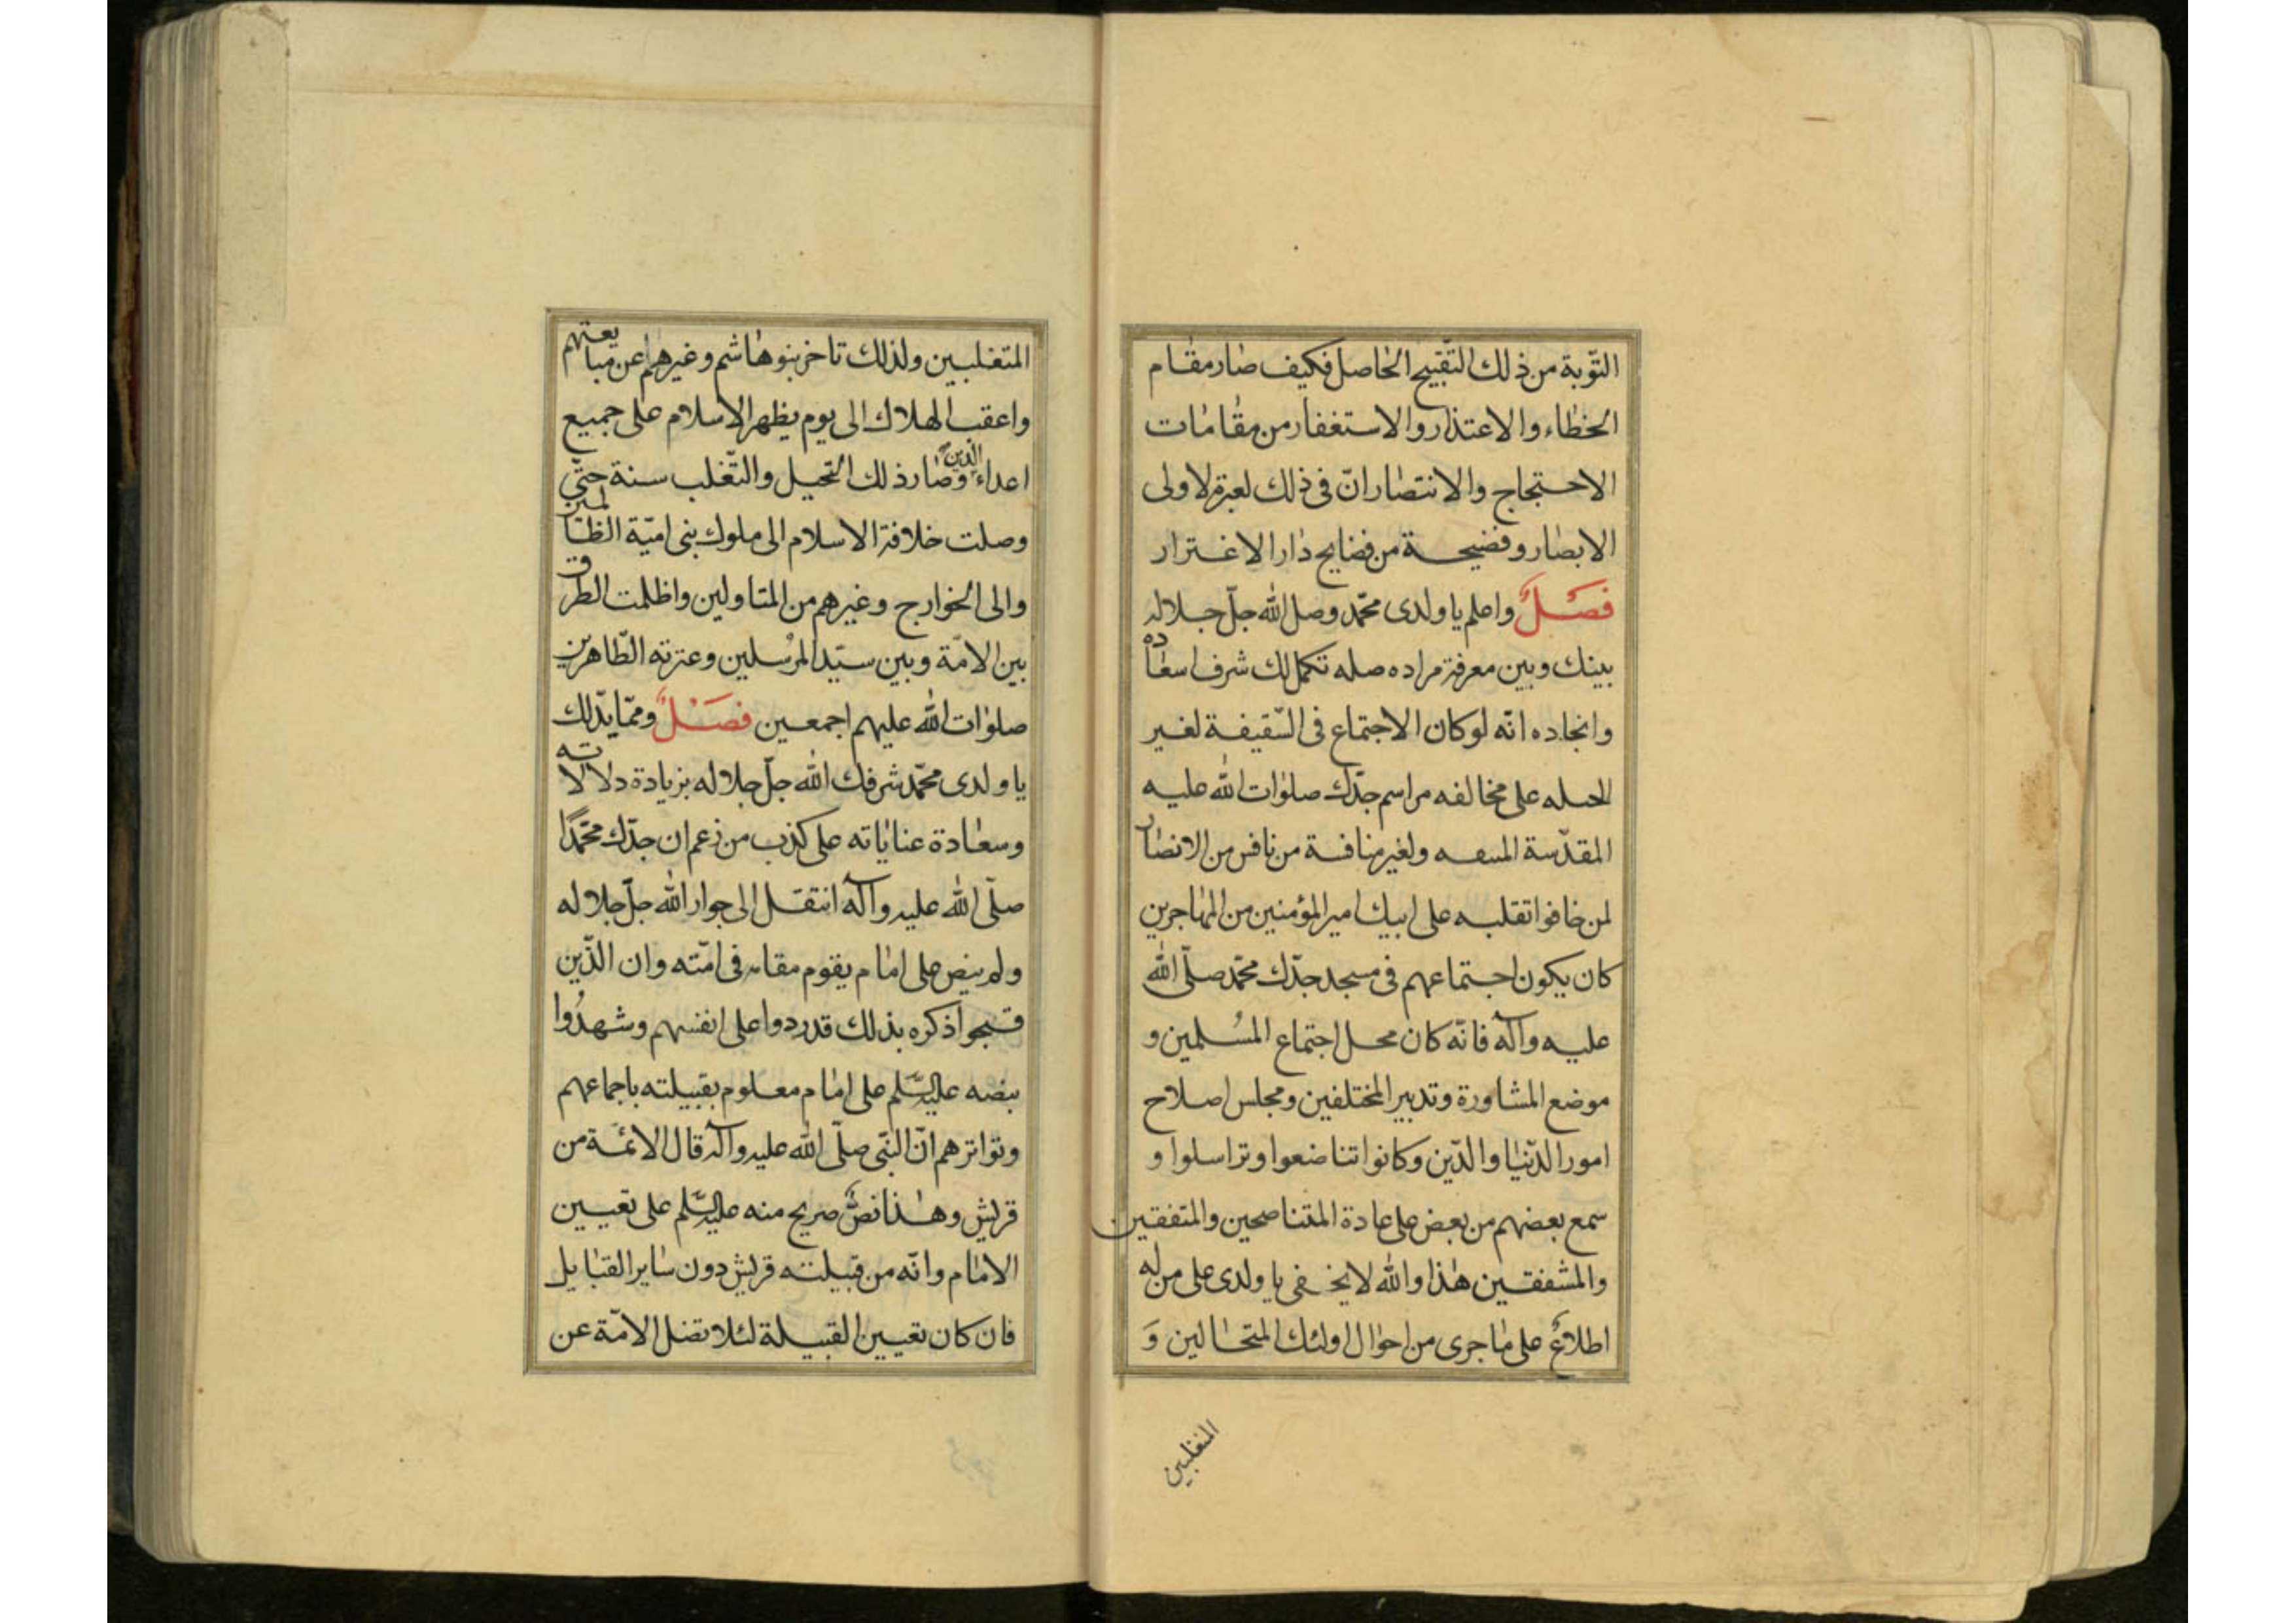 التّوبة من ذلك التّقبيح الحاصل فكيف صار مقام
الخطاء والاعتذار والاستغفار من مقامات
الاحتجاج والانتصار انّ فى ذلك لعبرة لاولى
الابصار وفضيحة من فضايح دار الاغترار
فَصْلٌ واعلم يا ولدى محمّد وصل الله جلّ جلاله
بينك وبين معرفة مراده صله تكمل لك شرف اسعاده
وانجاده انّه لو كان الاجتماع فى السّقيفة لغير
الحىله على مخالفه مراسم جدّك صلوات الله عليه
المقدّسة ولغير منافسة من نافس من الانصار
لمن خافوا تقلبه على ابيك امير المؤمنين من المهاجرين
كان يكون اجتماعهم فى مسجد جدّك محمّد صلّى الله
عليه وآله فانّه كان محل اجتماع المُسلمين و
موضع المشاورة وتدبير المختلفين ومجلس اصلاح
امور الدّنيا والدّين وكانوا تناضعوا وتراسلوا و
سمع بعضهم من بعض على عادة المتناصحين والمتفقين
والمشفقين هذا والله لا يخفى يا ولدى على من له
اطلاعٌ على ما جرى من احوال اولئك المتحالين وَ
المتغلبين
المتغلبين ولذلك تاخر بنو هاشم وغيرهم عن مبايعتهم
واعقب الهلاك الى يوم يظهر الاسلام على جميع
اعداء الدّين وصار ذلك التحيل والتّغلب سنة حتّى
وصلت خلافة الاسلام الى ملوك بنى اميّة الظّالمين
والى الخوارج وغيرهم من المتاولين واظلمت الطرق
بين الامّة وبين سيّد المُرسلين وعترته الطّاهرين
صلوات الله عليهم اجمعين فصَْلٌ وممّا يدّلك
يا ولدى محمّد شرفك الله جلّ جلاله بزيادة دلالاته
وسعادة عناياته على كذب من زعم ان جدّك محمّدًا
صلّى الله عليه وآله انتقل الى جوار الله جلّ جلاله
ولم ينص على امام يقوم مقامه فى امّته وان الّذين
قبحوا ذكره بذلك قد ردوا على انفسهم وشهدُوا
بنصه عليه السّلم على امام معلوم بقبيلته باجماعهم
وتواترهم انّ النبّى صلّى الله عليه وآله قال الائمّة من
قريش وهذا نصٌّ صريح منه عليه السّلم على تعيين
الامام وانّه من قبيلته قريش دون ساير القبايل
فان كان تعيين القبيلة لئلا تضل الامّة عن